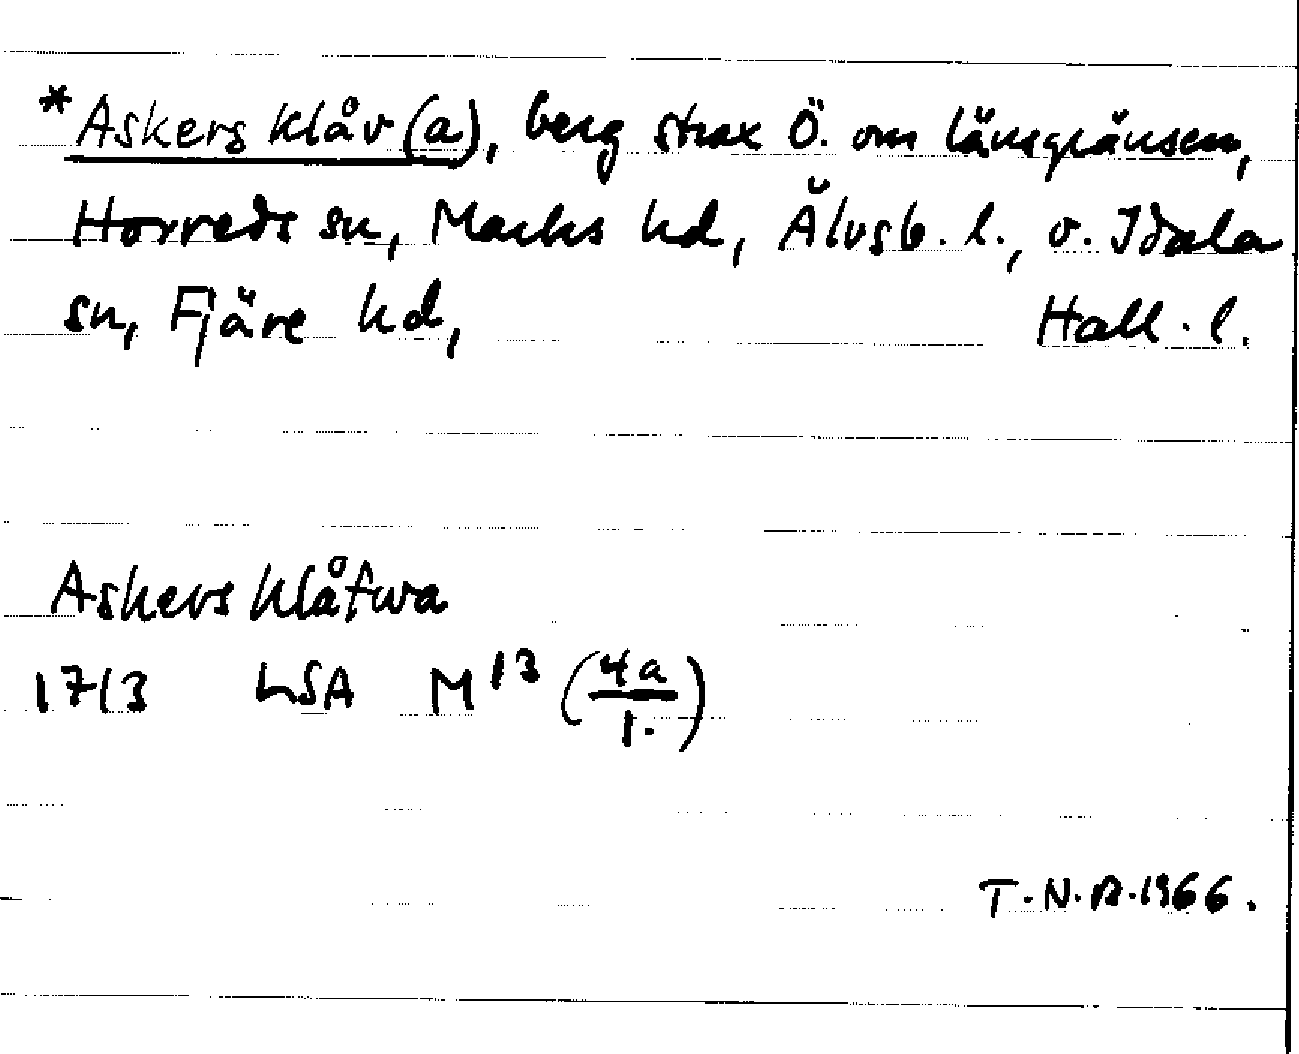 *Askers klåv (a), berg strax Ö. om länsgränsen,
Horreds sn, Marks hd, Älvsb. l., o. Idala
sn, Fjäre hd, Hall. l.
Askers Klåfwa
1713 LSA M 13 (4a/1.)
T.N.A. 1966.